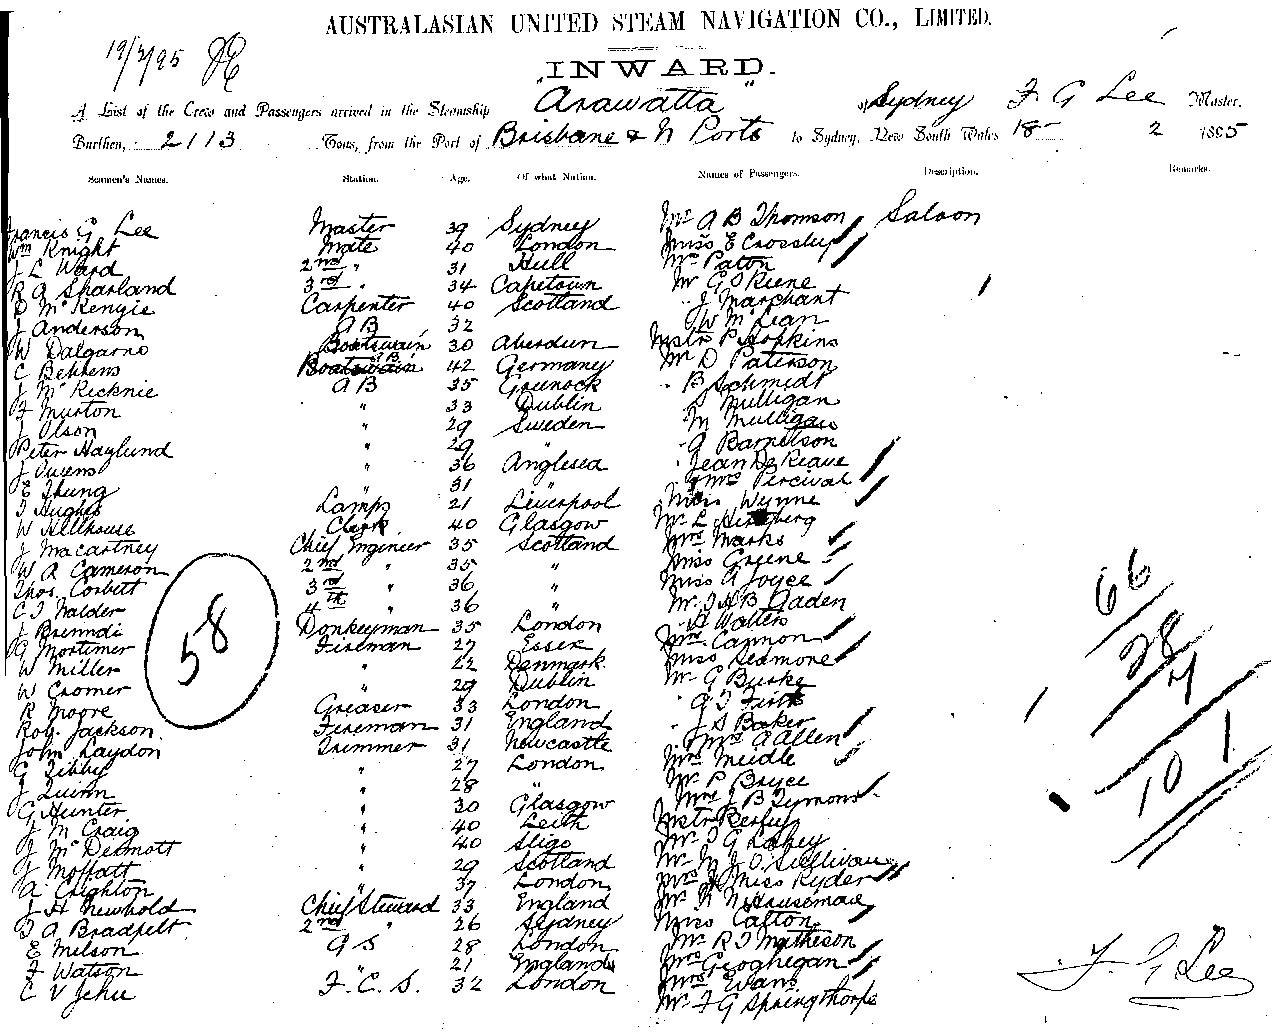 AUSTRALASIAN UNITED STEAM NAVIGATION CO., LIMITED.
19/2/95
"INWARD."
A List of the Crew and Passengers arrived in the Steamship Arawatta of Sydney F G Lee Master.
Burthen, 2113 Tons, from the Port of Brisbane & N Ports to Sydney, New South Wales 18 - 2 1895
Seamen's Names. Station. Age. Of what Nation. Names of Passengers. Description. Remarks.
Francis G Lee Master 39 Sydney Mr A B Thomson Saloon
Wm Knight Mate 40 London Miss E Crossley
J L Ward 2nd " 31 Hull Mrs Paton
R A Sparland 3rd " 34 Capetown Mr G
D McKenzie Carpenter 40 Scotland " J Marchant
J Anderson A B 32 " W McLean
W Dalgarno Boatswain 30 Aberdeen Mstr P Hopkins
C Behrens Boatswain A B 42 Germany Mr D Paterson
J McKechnie A B 35 Greenock " B Schmidt
F Murton " 33 Dublin Mulligan
J Olson " 29 Sweden M Mulligan
Peter Haylund " 29 " " A
J Owens " 36 Anglesea Jean De
E Thung " 31 " Mrs Percival
T Hughes Lamps 21 Liverpool Miss Wynne
W Hillhouse Clerk 40 Glasgow Mr L
J Macartney Chief Engineer 35 Scotland Mrs Marks
W A Cameron 2nd " 35 " Miss Greene
Thos. Corbett 3rd " 36 " Miss A Joyce
C J Walder 4th " 36 " Mr J H B Gaden
J Donkeyman 35 London " H Walters
G Mortimer Fireman 27 Essex Mrs Cannon
W Miller " 22 Denmark Miss Seamore
W Cromer " 29 Dublin Mr G Burke
R Moore Greaser 33 London " A J Frith
Robt. Jackson Fireman 31 England " J S Baker
John Laydon Trimmer 31 Newcastle " Mrs A Allen
G Tibby " 27 London Mrs Meidle
J Quinn " 28 " Mr P Bryce
G Hunter " 30 Glasgow Mrs J B Symons
J McCraig " 40 Leith Mstr
J McDermott " 40 Sligo Mr T G Lahey
J Moffatt " 29 Scotland Mr M J O'Sullivan
A Crighton " 37 London Mrs & Miss Ryder
J H Newbold Chief Steward 33 England Mr R N Houseman
T A 2nd " 26 Sydney Miss Cafton
E Melson A S 28 London Mr R J Matheson
F Watson " 21 England Mrs Geoghegan
C V Jehu F. C. S. 32 London Mrs Evans
Mr F G Springthorpe
58
66
28
7
101
F. G Lee